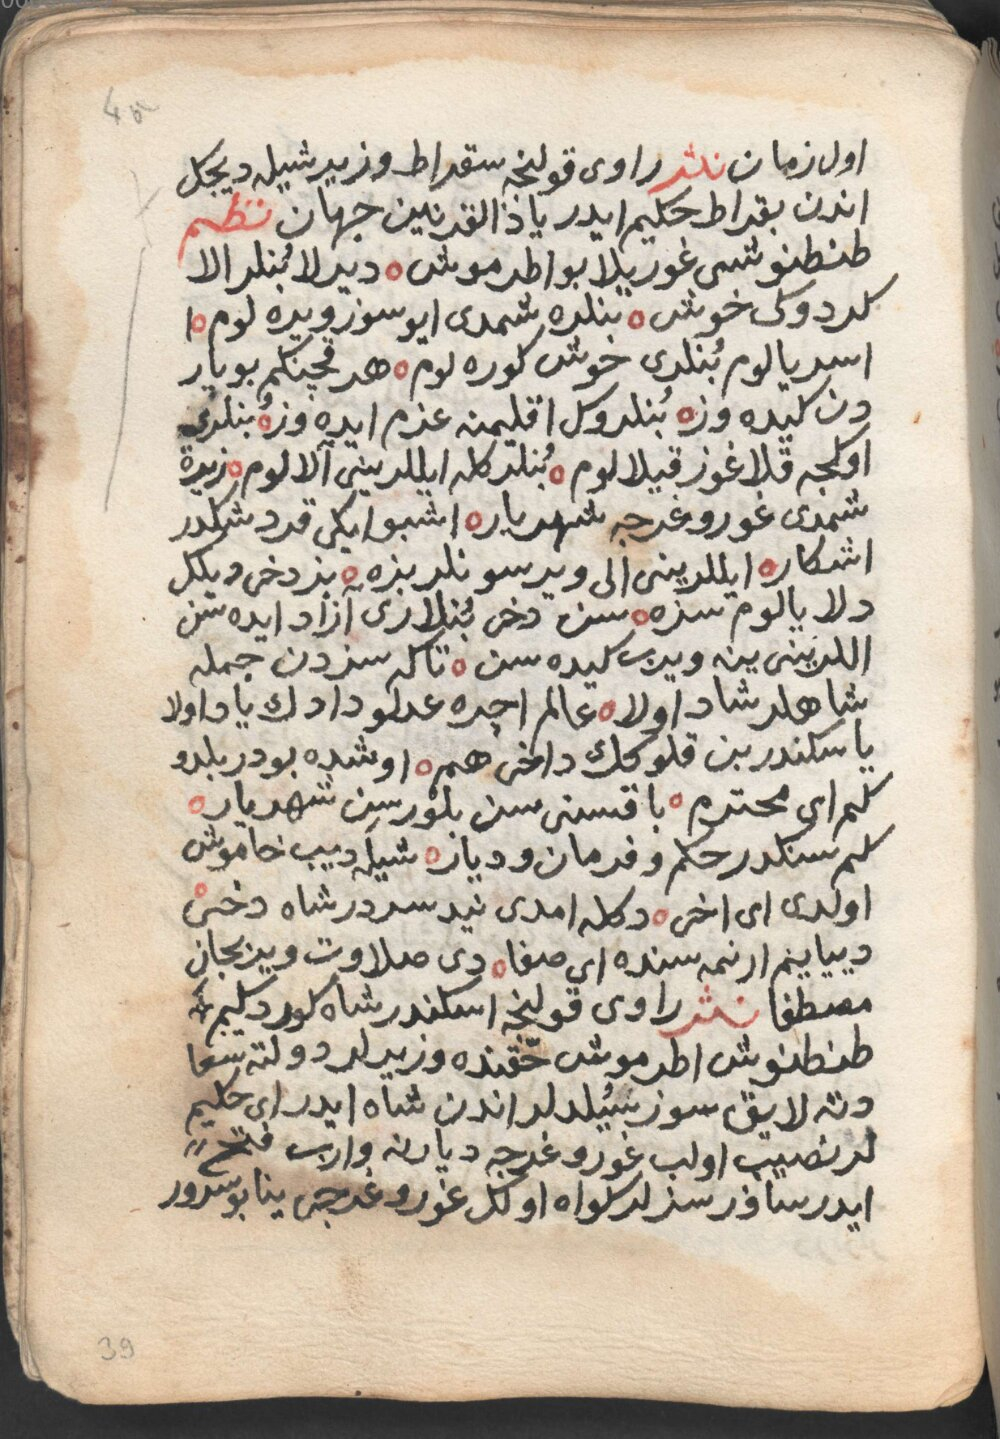 اول زمان نثر راوی قولنجه سقراط وزیر شیله دیجک
اندن بقراط حکیم ایدر یا ذا القرنین جهان نظم
طنطنوشی غوریلا بو اطرموش ه دیرلا بُنلر الا
کلردوکی خوش ه بنلره شمدی ایو سوز ویره لوم ه ا
اسریالوم بُنلری خوش کوره لوم ه هر قچنکم بو یار
دن کیده وز ه بُنلر وکل اقلیمنه عزم ایده وز ه بنلری
اوکجه قلاغوز قیلالوم ه بُنلر کله ایللرینی آلالوم ه زیرۀ
شمدی غور و غرجه شهریار ه اشبو ایکی قردشکدر
اشکار ه ایللرینی الی ویرسونلر بزه ه بز دخی دیلک
دلایالوم سزه ه سن دخی بُنلاری آزاد ایده سن
اللرینی ینه ویرب کیده سن ه تاکه سزدن جمله
شاهلر شاد اولا ه عالم اچره عدلو دادك یاد اولا
یا سکندر بن قلوکك داخی هم ه اوشده بودر بلدو
کلم ای محترم ه باقسنی سن بلورسن شهریار ه
کم سنکدر حکم و فرمان و دیار ه شیله دیب خاموش
اولدی ای اخی ه دکله امدی نیدسردر شاه دخی ه
دییاینم ارنمه سنده ای صفا ه دی صلاوت ویر بجان
مصطفا نثر راوی قولنجه اسکندر شاه کوردکیم
طنطنوش اطرموش حقنده وزیرلر دولته سعا
دته لایق سوز سُیلدلر اندن شاه ایدر ای حکیم
لر نصیب اولب غور و غرجه دیارنه وارب فتح
ایدرساوز سزلر کواه اولک غور و غرجی ینا بوسرور